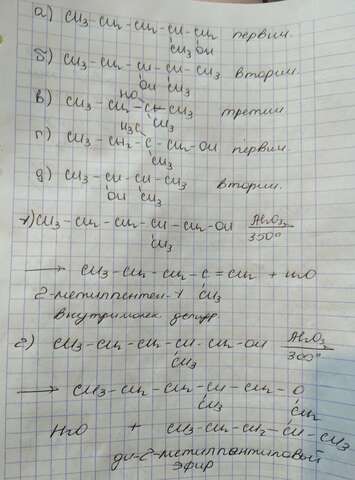 а) CH3 - CH2 - CH2 - CH - CH2 первич.
CH3 OH
б) CH3 - CH2 - CH - CH - CH3 вторич.
OH CH3
HO
в) CH3 - CH2 - C - CH3 третич.
CH3
H3C
г) CH3 - CH2 - C - CH2 - OH первич.
CH3
д) CH3 - CH - CH - CH3 вторич.
OH CH3
1) CH3 - CH2 - CH2 - CH - CH2 - OH Al2O3
CH3 350°
→ CH3 - CH2 - CH2 - C = CH2 + H2O
2-метилпентен-1 CH3
внутримолек. дегидр.
2) CH3 - CH2 - CH2 - CH - CH2 - OH Al2O3
CH3 300°
→ CH3 - CH2 - CH2 - CH - CH2 - O
CH3 CH2
H2O + CH3 - CH2 - CH2 - CH - CH3
ди-2-метилпентиловый
эфир